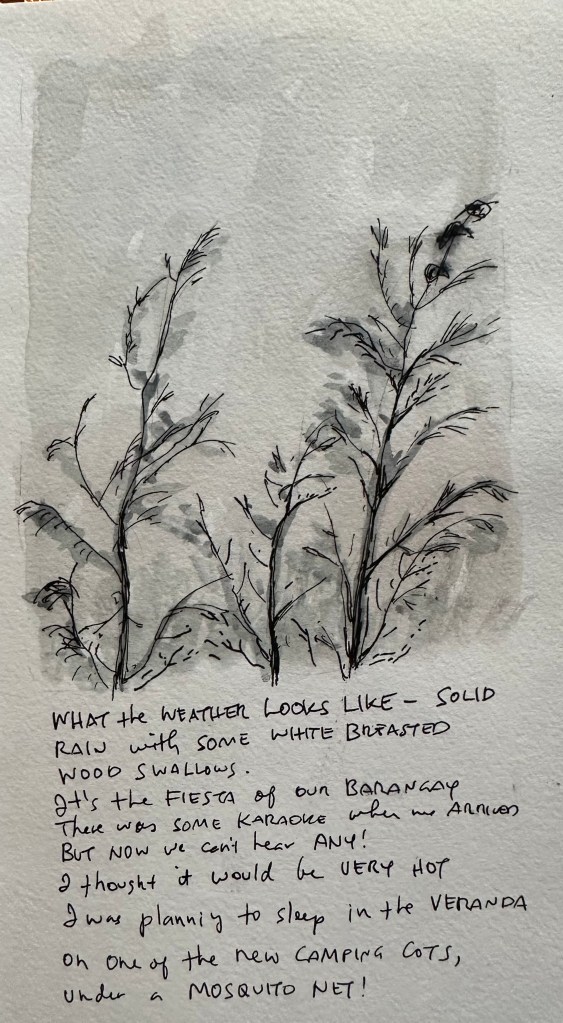 WHAT the WEATHER LOOKS LIKE – SOLID
RAIN with SOME WHITE BREASTED
WOOD SWALLOWS.
It's the FIESTA of our BARANGAY
There was SOME KARAOKE when we ARRIVED
BUT NOW we can't hear ANY!
I thought it would be VERY HOT
I was planning to sleep in the VERANDA
on one of the new CAMPING COTS,
under a MOSQUITO NET!